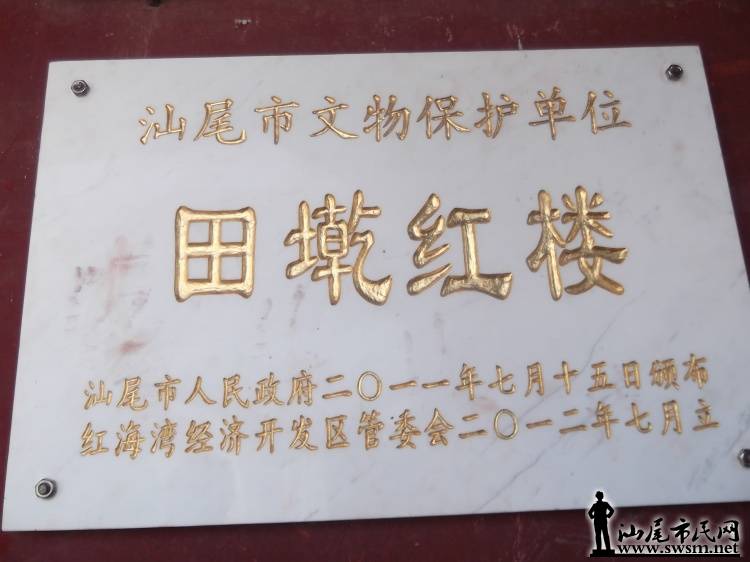 汕尾市文物保护单位
田墘红楼
汕尾市人民政府二〇一一年七月十五日颁布
红海湾经济开发区管委会二〇一二年七月立
汕尾市民网
www.swsm.net